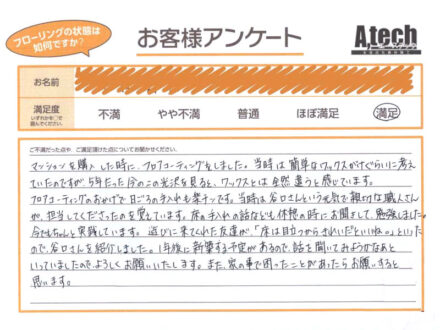 フローリングの状態は
如何ですか?
お客様アンケート
Atech
お名前
満足度
いずれかを○で
囲んでください。
不満 やや不満 普通 ほぼ満足 満足
ご不満だった点や、ご満足頂けた点についてお聞かせください。
マンションを購入した時に、フロアコーティングをしました。当時は簡単なワックスがけぐらいに考え
ていたのですが、5年たった今のこの光沢を見ると、ワックスとは全然違うと感じています。
フロアコーティングのおかげで日ごろの手入れも楽チンです。当時は谷口さんという元気で親切な職人さん
が、担当してくださったのを覚えています。床の手入れの話なども休憩の時にお聞きして、勉強しました。
今でもちゃんと実践しています。遊びに来てくれた友達が、「床は目立つからきれいだといいね。」といった
ので、谷口さんを紹介しました。1年後に新築する予定があるので、話を聞いてみようかなあと
いっていましたので、よろしくお願いいたします。また、家の事で困ったことがあったらお願いすると
思います。